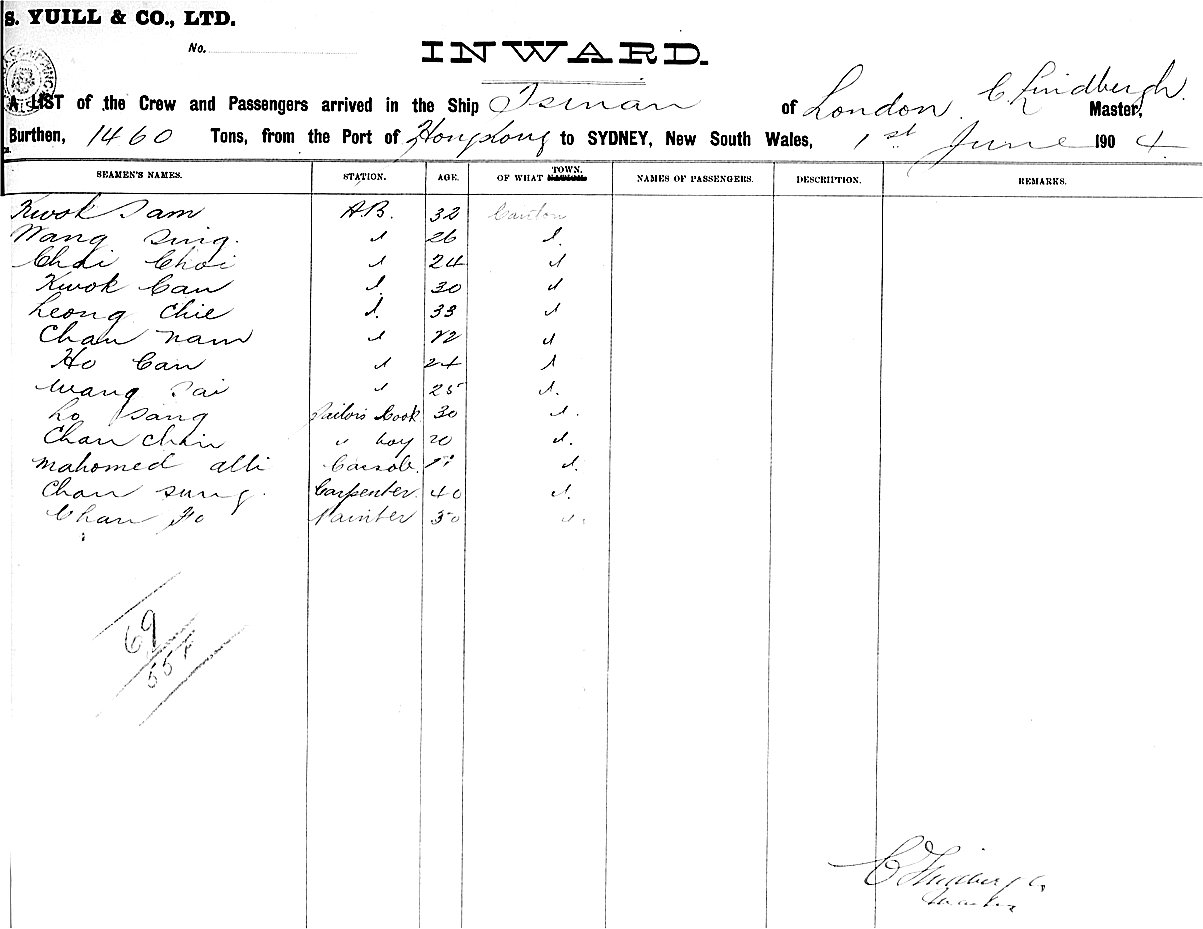 S. YUILL & CO., LTD.
No.
INWARD.
A LIST of the Crew and Passengers arrived in the Ship Tsinan of London C Lindbergh Master,
Burthen, 1460 Tons, from the Port of Hongkong to SYDNEY, New South Wales, 1st June 1904
SEAMEN'S NAMES. STATION. AGE. OF WHAT NATION. TOWN. NAMES OF PASSENGERS. DESCRIPTION. REMARKS.
Kwok Sam A.B. 32 Canton
Wang Sing. d 26 d.
Chai Choi d 24 d
Kwok Can d. 30 d
Leong Chie d. 33 d
Chan Nam d 22 d
Ho Can d 24 d
Wang Sai d 25 d.
Lo Sang Sailors Cook 30 d.
Chan Chain " boy 20 d.
Mahomed alli d.
Chan Sung. Carpenter. 40 d.
Chan Fo Painter 30 d.
69
554
C Lindbergh
Master